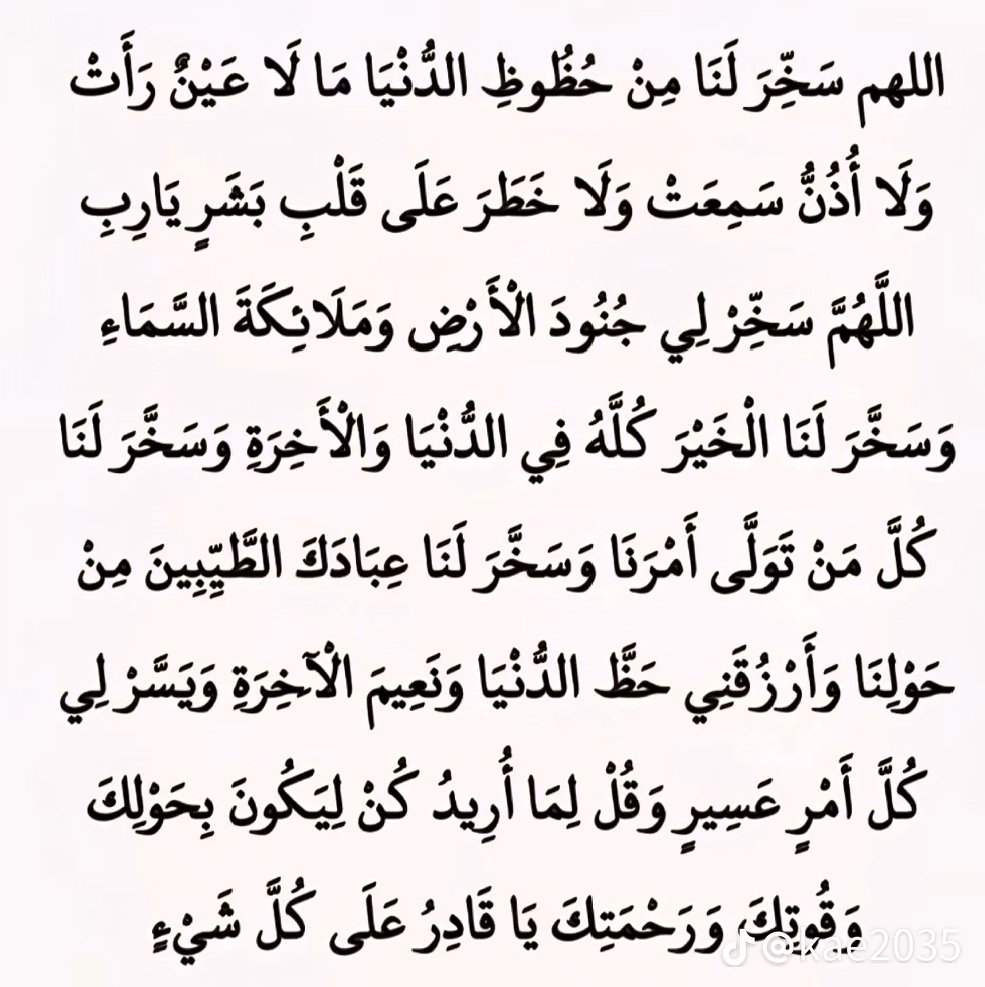 اللهم سَخِّرَ لَنَا مِنْ حُظُوظِ الدُّنْيَا مَا لَا عَيْنٌ رَأَتْ
وَلَا أُذُنٌ سَمِعَتْ وَلَا خَطَرَ عَلَى قَلْبِ بَشَرٍ يَارِبِ
اللَّهُمَّ سَخِّرْ لِي جُنُودَ الْأَرْضِ وَمَلَائِكَةَ السَّمَاءِ
وَسَخَّرَ لَنَا الْخَيْرَ كُلَّهُ فِي الدُّنْيَا وَالْأَخِرَةِ وَسَخَّرَ لَنَا
كُلَّ مَنْ تَوَلَّى أَمْرَنَا وَسَخَّرَ لَنَا عِبَادَكَ الطَّيِّبِينَ مِنْ
حَوْلِنَا وَأَرْزُقَنِي حَظَّ الدُّنْيَا وَنَعِيمَ الْآخِرَةِ وَيَسَّرْ لِي
كُلَّ أَمْرٍ عَسِيرٍ وَقُلْ لِمَا أُرِيدُ كُنْ لِيَكُونَ بِحَوْلِكَ
وَقُوتِكَ وَرَحْمَتِكَ يَا قَادِرُ عَلَى كُلَّ شَيْءٍ
@kae2035